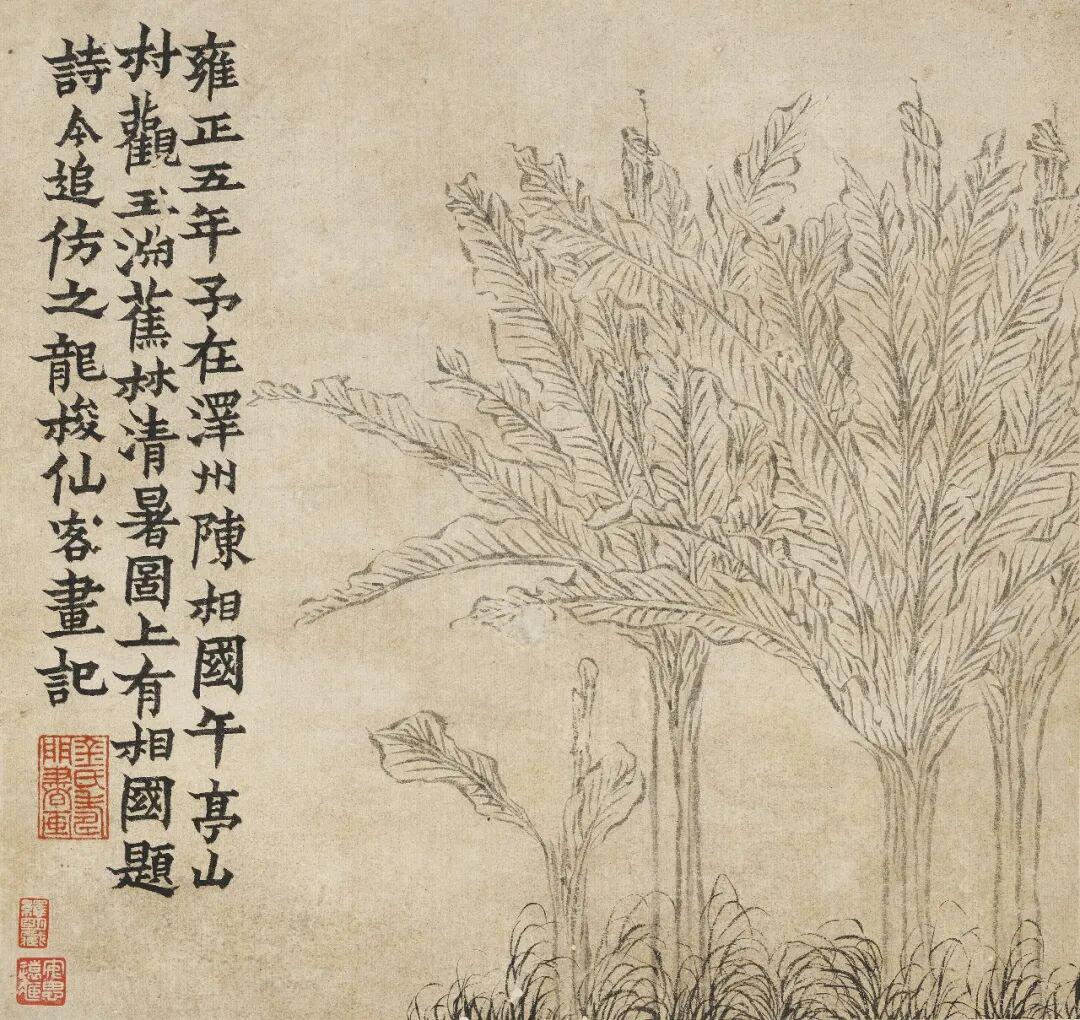 雍正五年予在澤州陳相國午亭山
村觀玉淵蕉林清暑圖上有相國題
詩今追仿之龍梭仙客畫記